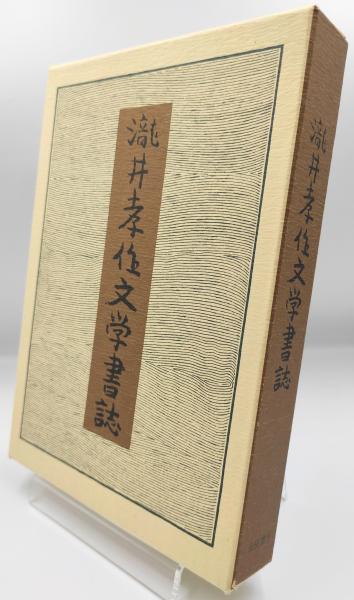 瀧井孝作文学書誌
瀧井孝作文学書誌